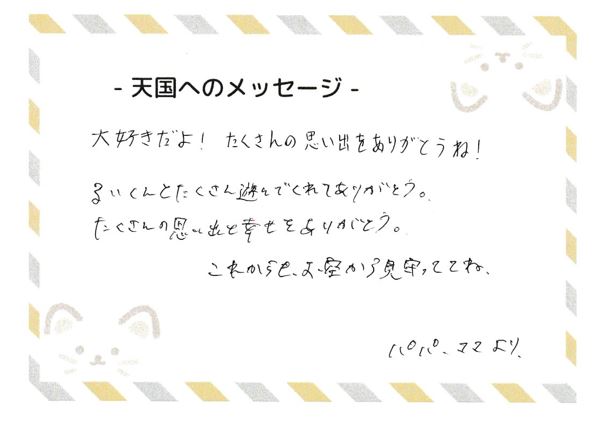 - 天国へのメッセージ -
大好きだよ! たくさんの思い出をありがとうね!
るいくんとたくさん遊んでくれてありがとう。
たくさんの思い出と幸せをありがとう。
これからも、お空から見守っててね、
パパ、ママより、